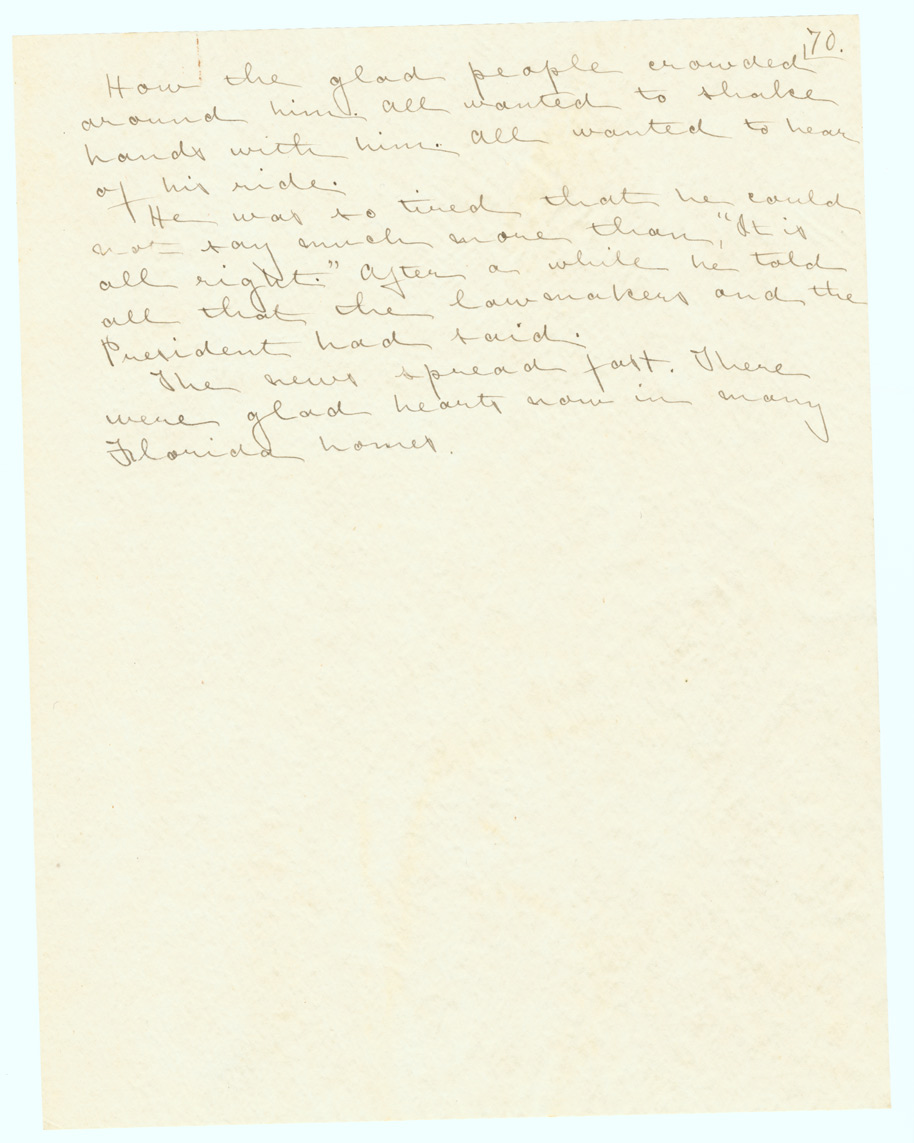 70.
How the glad people crowded
around him. All wanted to shake
hands with him. All wanted to hear
of his ride.
He was so tired that he could
not say much more than, "It is
all right." After a while he told
all that the lawmakers and the
President had said.
The news spread fast. There
were glad hearts now in many
Florida homes.